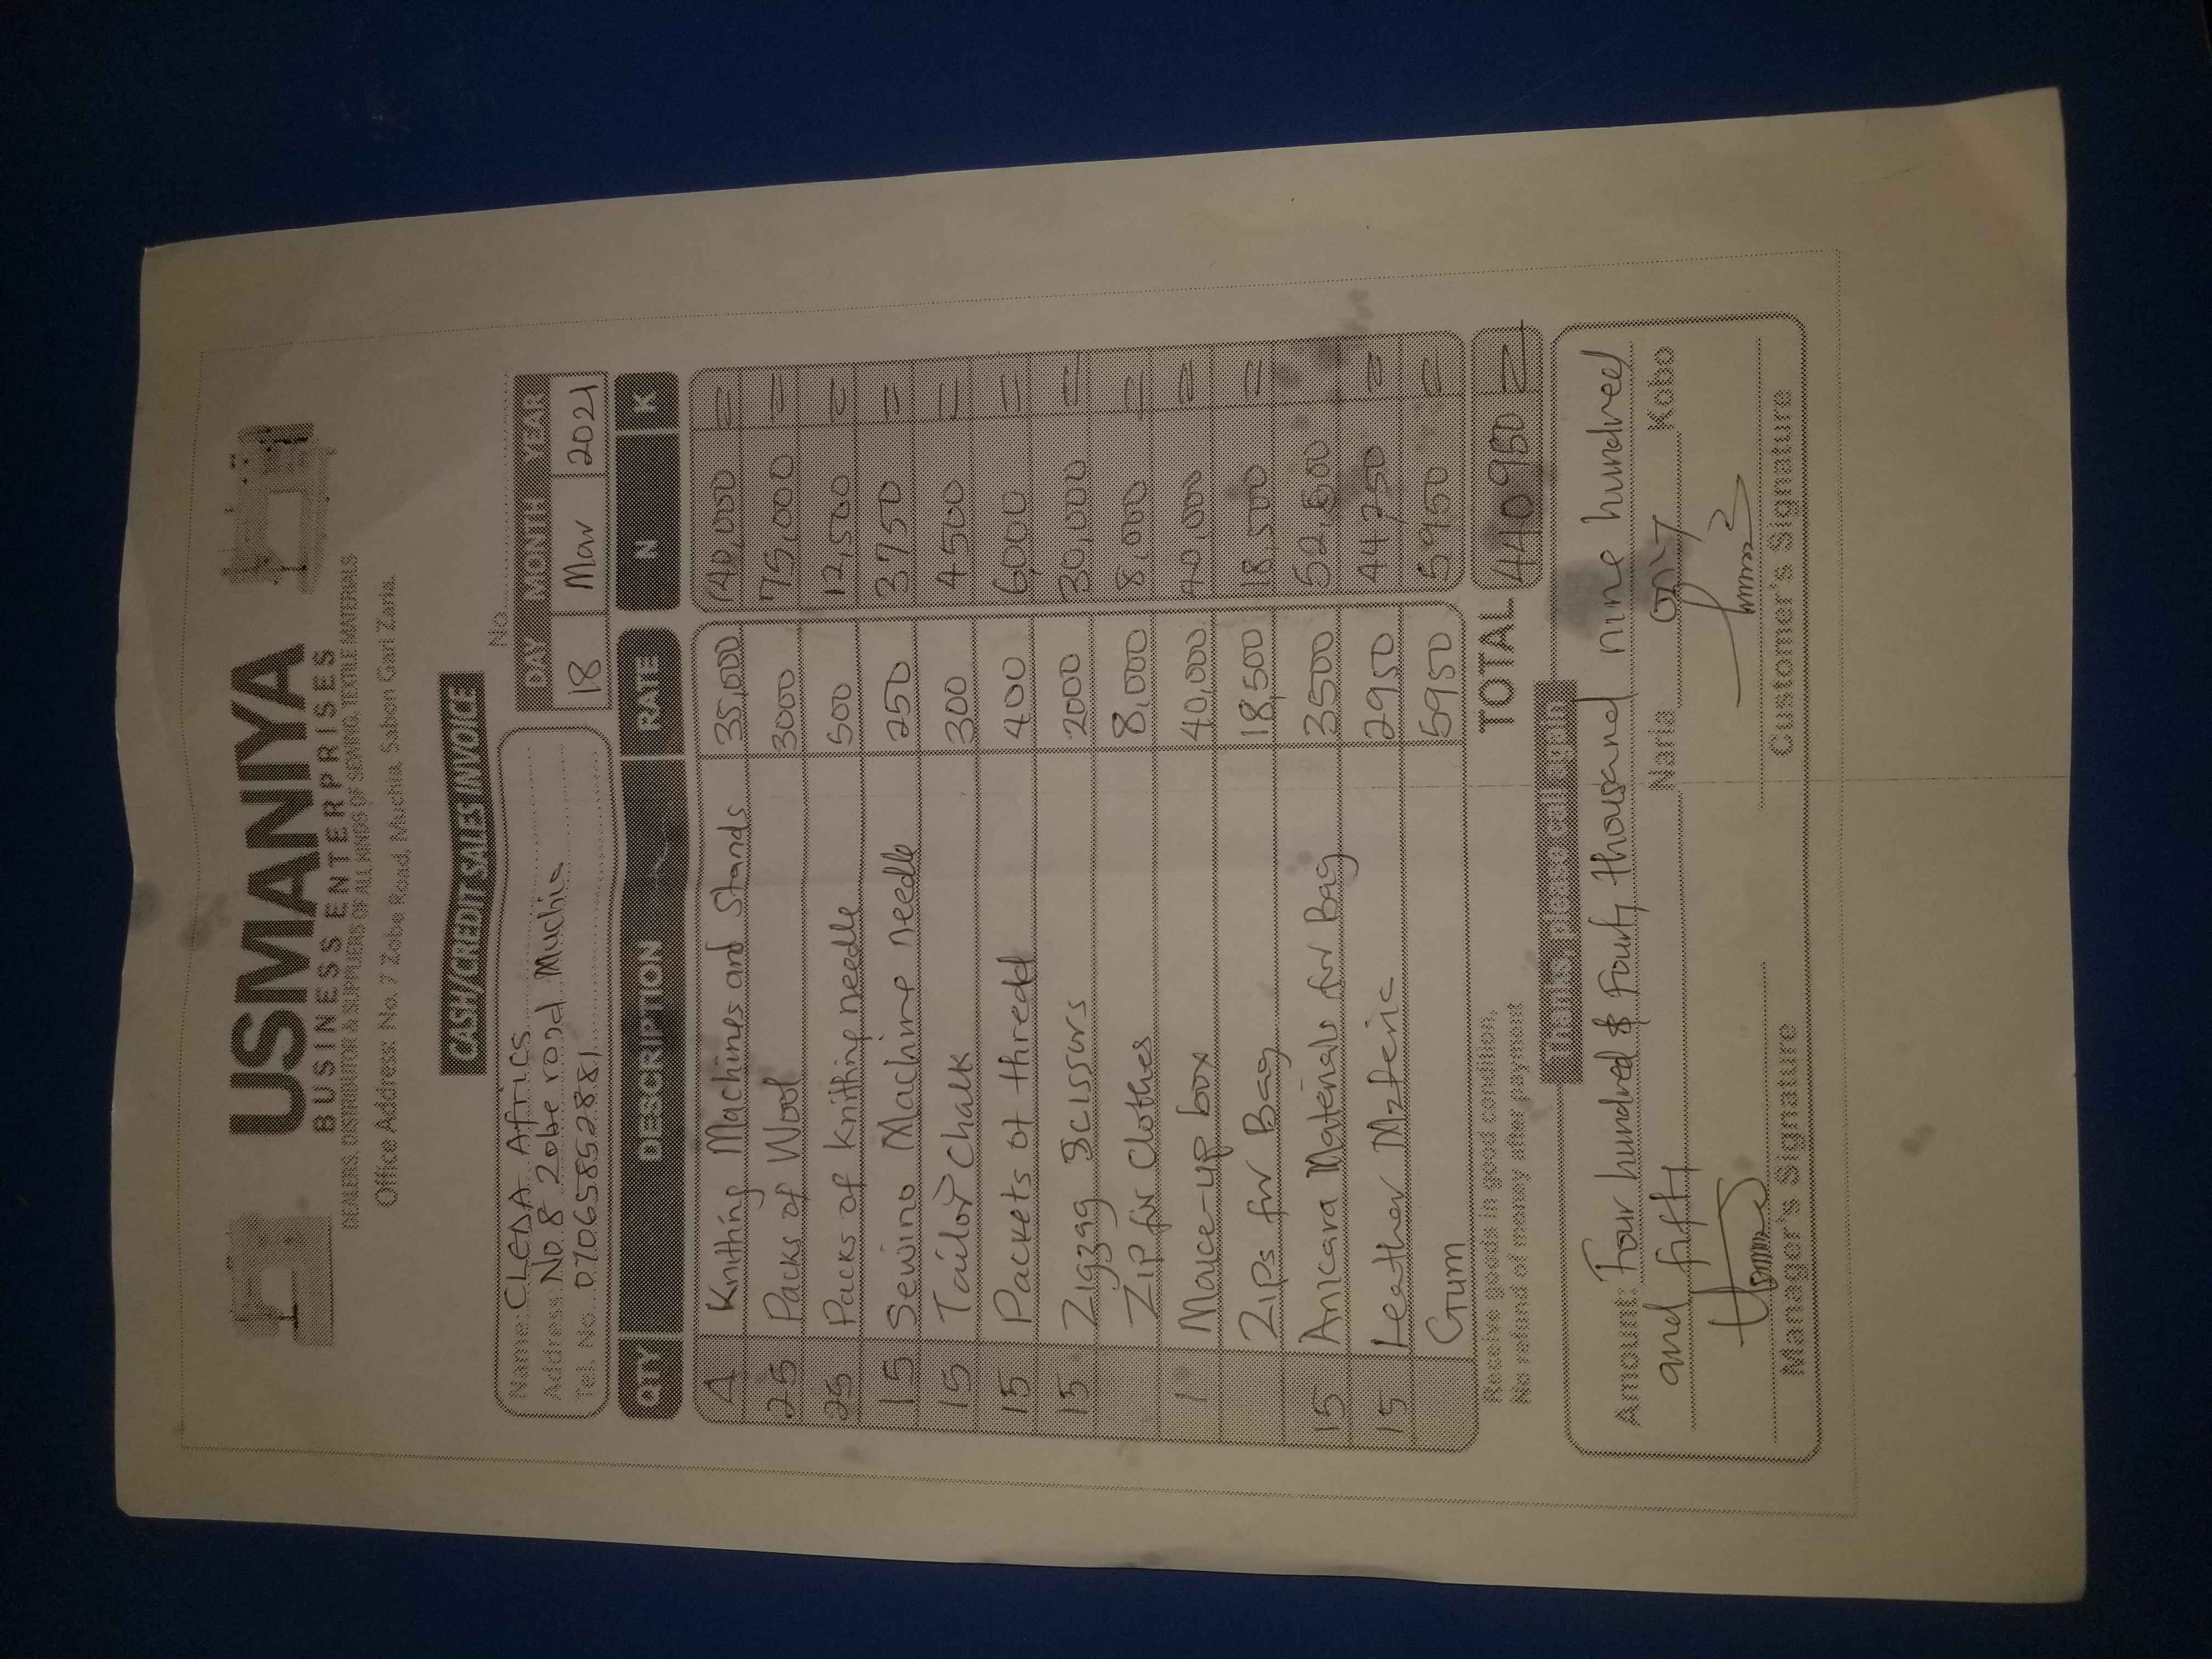 USMANIYA
BUSINESS ENTERPRISES
DEALERS, DISTRIBUTOR & SUPPLIERS OF ALL KINDS OF SEWING, TEXTILE MATERIALS
Office Address: No. 7 Zobe Road, Muchia, Sabon Gari Zaria.
CASH/CREDIT SALES INVOICE
No.
Name: CLEDA Africa
Address: No 8 Zobe road Muchia
Tel. No. 07065852881
DAY MONTH YEAR
18 Mar 2021
QTY DESCRIPTION RATE N K
4 Knitting Machines and Stands 35,000 140,000 =
25 Packs of Wool 3000 75,000 =
25 Packs of Knitting needle 500 12,500 =
15 Sewing Machine needle 250 3750 =
15 Tailor Chalk 300 4500 =
15 Packets of thredd 400 6,000 =
15 Zigzag Scissors 2000 30,000 =
Zip for Clothes 8,000 8,000 =
1 Make-up box 40,000 40,000 =
Zips for Bag 18,500 18,500 =
15 Ankara Materials for Bag 3500 52,500
15 Leather 2950 44250 =
Gum 5950 5950 =
TOTAL 440950 =
Receive goods in good condition.
No refund of money after payment
Thanks, please call again
Amount: Four hundred & Fourty thousand nine hundred
and fifty Naria only Kobo
Manager's Signature Customer's Signature